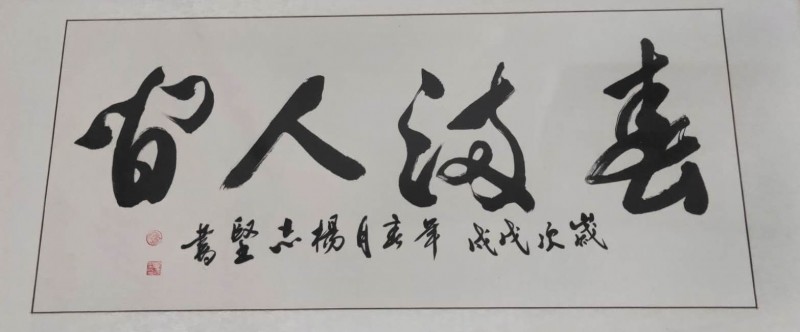 春满人间
歲次戊戌年春月楊志堅書